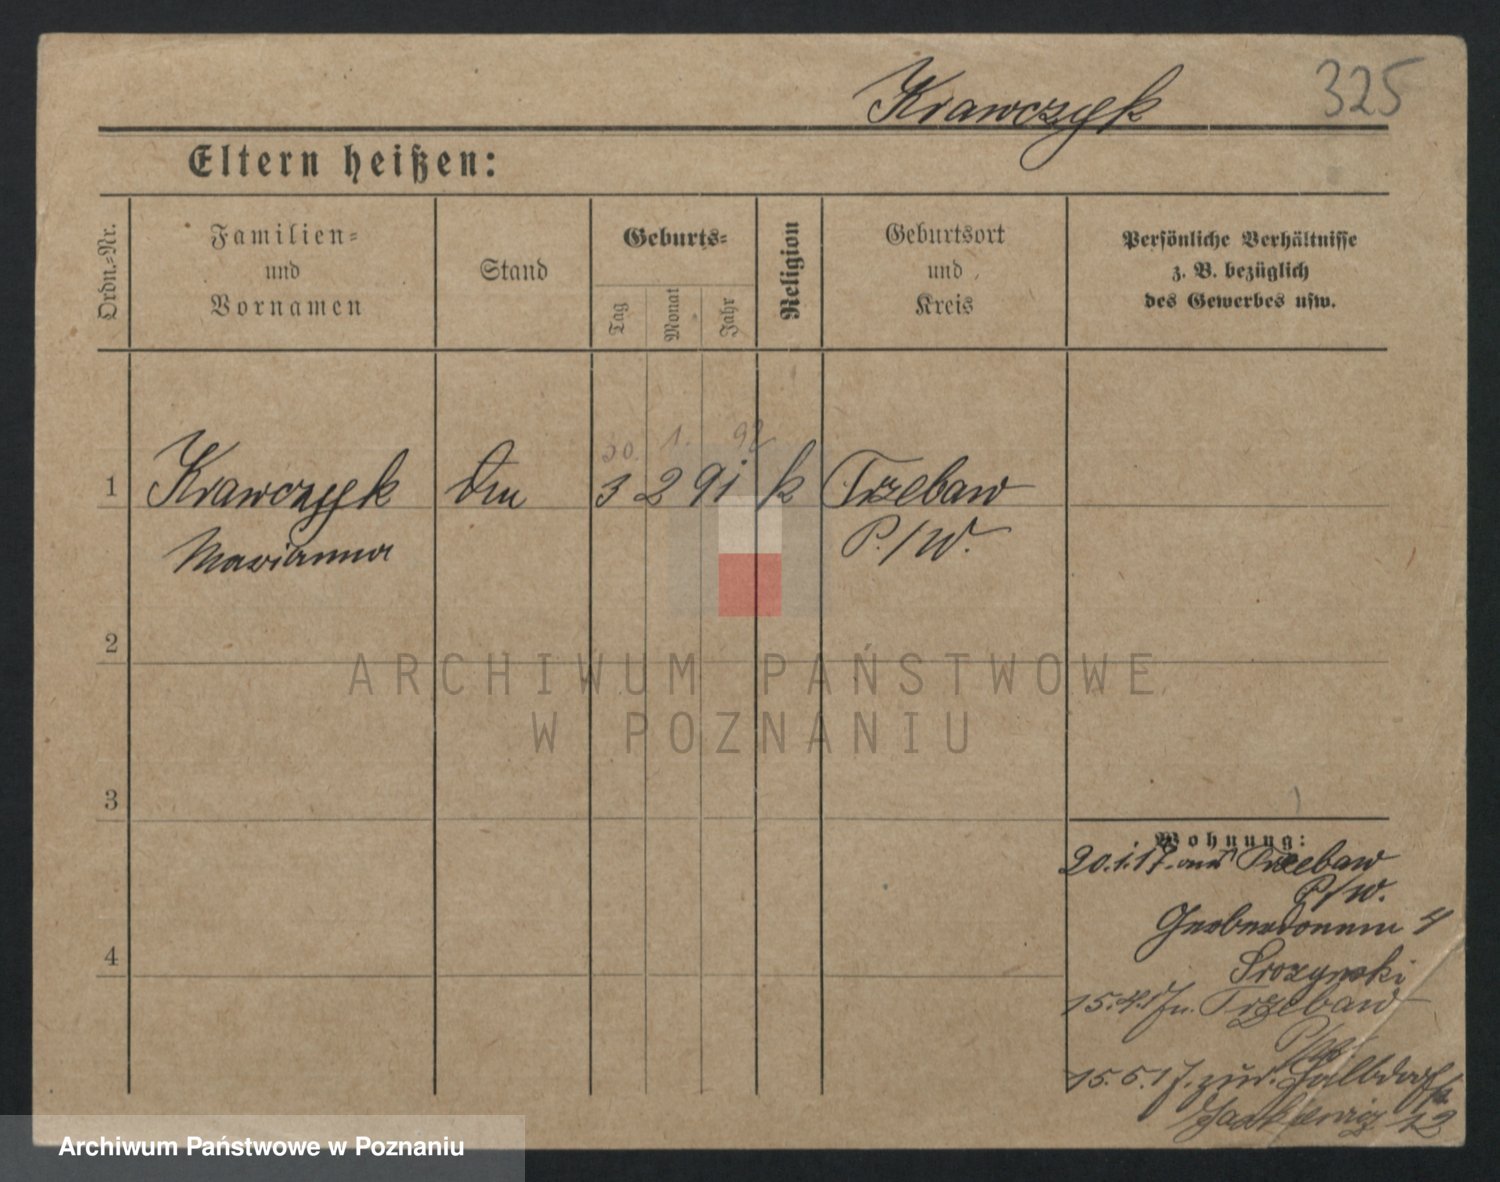 Krawczyk 325
Eltern heißen:
Ordn.-Nr.
Familien-
und
Vornamen
Stand
Geburts-
Tag
Monat
Jahr
Religion
Geburtsort
und
Kreis
Persönliche Verhältnisse
z. B. bezüglich
des Gewerbes usw.
30. 1. 92
1 Krawczyk 3 2 91 k Trzebaw
Marianna P./W.
2
ARCHIWUM PAŃSTWOWE
W POZNANIU
3
Wohnung:
20.1.17. aus Trzebaw
P./W.
Gerberdamm 4
15.4.17 n. Trzebaw
4
15.5.17. zur. Halbdorfstr
12
Archiwum Państwowe w Poznaniu